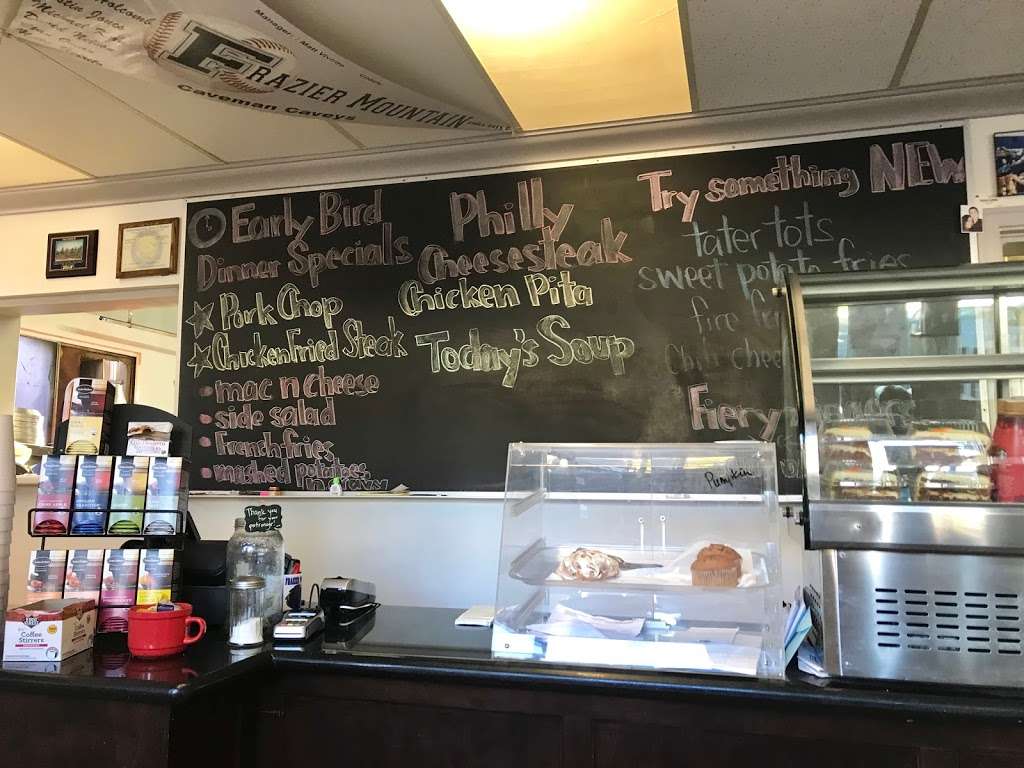 Manager: Matt
FRAZIER MOUNTAIN
Caveman Caveys
Early Bird
Dinner Specials
Pork Chop
Chicken Fried Steak
mac n cheese
side salad
French fries
mashed potatoes
n gravy
Philly
Cheesesteak
Chicken Pita
Today's Soup
Try something NEW
tater tots
sweet potato fries
Fiery
Pumpkin
Thank you
for your
patronage
Coffee
Stirrers